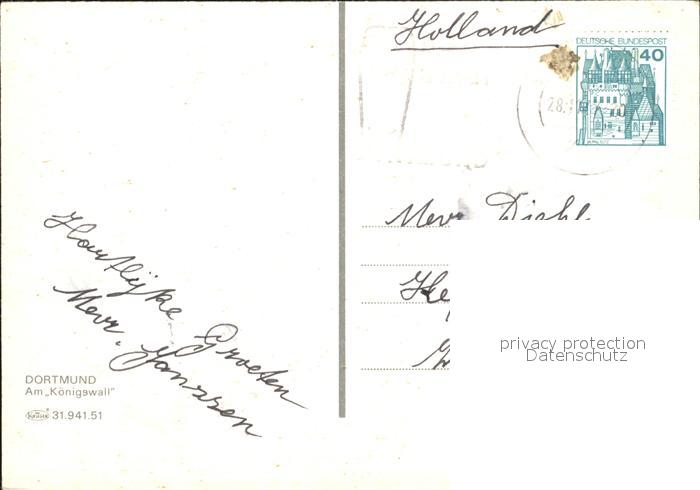 Holland
DEUTSCHE BUNDESPOST
40
28.
Mevr Diehl
He
privacy protection
Datenschutz
Hartlijke Groeten
Mevr. Janssen
DORTMUND
Am „Königswall"
Krüger 31.941.51